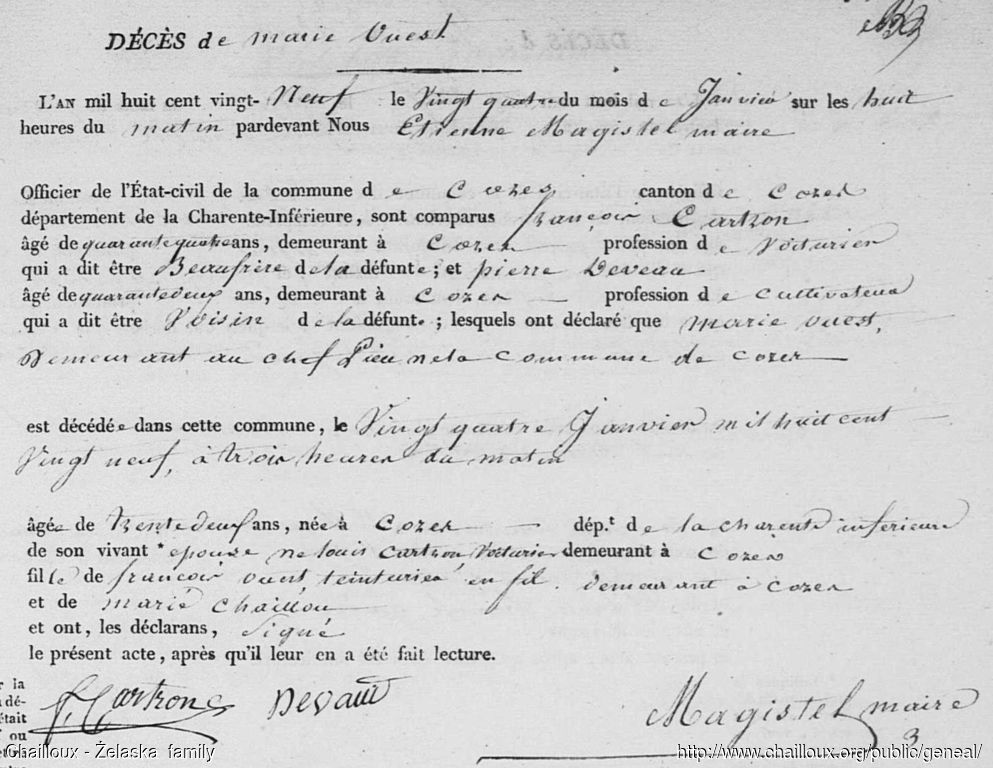 DÉCÈS de marie Ouest
L'AN mil huit cent vingt-Neuf le Vingt quatre du mois de Janvier sur les huit
heures du matin pardevant Nous Etienne Magistel maire
Officier de l'État-civil de la commune de Cozes canton de Cozes
département de la Charente-Inférieure, sont comparus françois Cartron
âgé de quarante quatre ans, demeurant à Cozes — profession de Voiturier
qui a dit être Beaufrère de la défunte; et pierre Deveau
âgé de quarante deux ans, demeurant à Cozes — profession de Cultivateur
qui a dit être Voisin de la défunt. ; lesquels ont déclaré que marie ouest,
Demeurant au chef Lieu de la Commune de Cozes —
est décédée dans cette commune, le Vingt quatre Janvier mil huit cent
Vingt neuf, à trois heures du matin
âgée de trente deux ans, née à Cozes — dép.t de la charente inférieure
de son vivant * epouse de louis Cartron, Voiturier demeurant à Cozes
fille de françois ouest teinturier en fil demeurant à Cozes
et de marie Chaillou
et ont, les déclarans, Signé
le présent acte, après qu'il leur en a été fait lecture.
r la
dé-
était
ou
f. Cartron Devaud Magistel maire
3
Chailloux - Żelaska family http://www.chailloux.org/public/geneal/